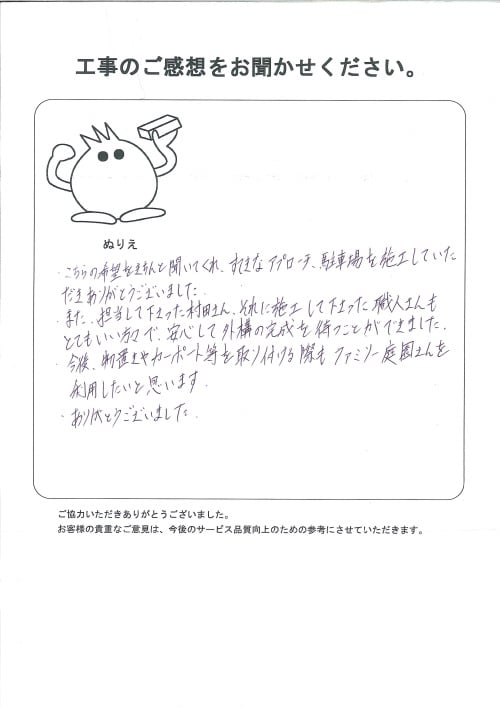 工事のご感想をお聞かせください。
ぬりえ
・こちらの希望をきちんと聞いてくれ、すてきなアプローチ、駐車場を施工していた
だきありがとうございました。
また、担当して下さった村田さん、それに施工して下さった職人さんも
とてもいい方々で、安心して外構の完成を待つことができました。
今後、物置きやカーポート等を取り付ける際もファミリー庭園さんを
利用したいと思います。
・ありがとうございました。
ご協力いただきありがとうございました。
お客様の貴重なご意見は、今後のサービス品質向上のための参考にさせていただきます。